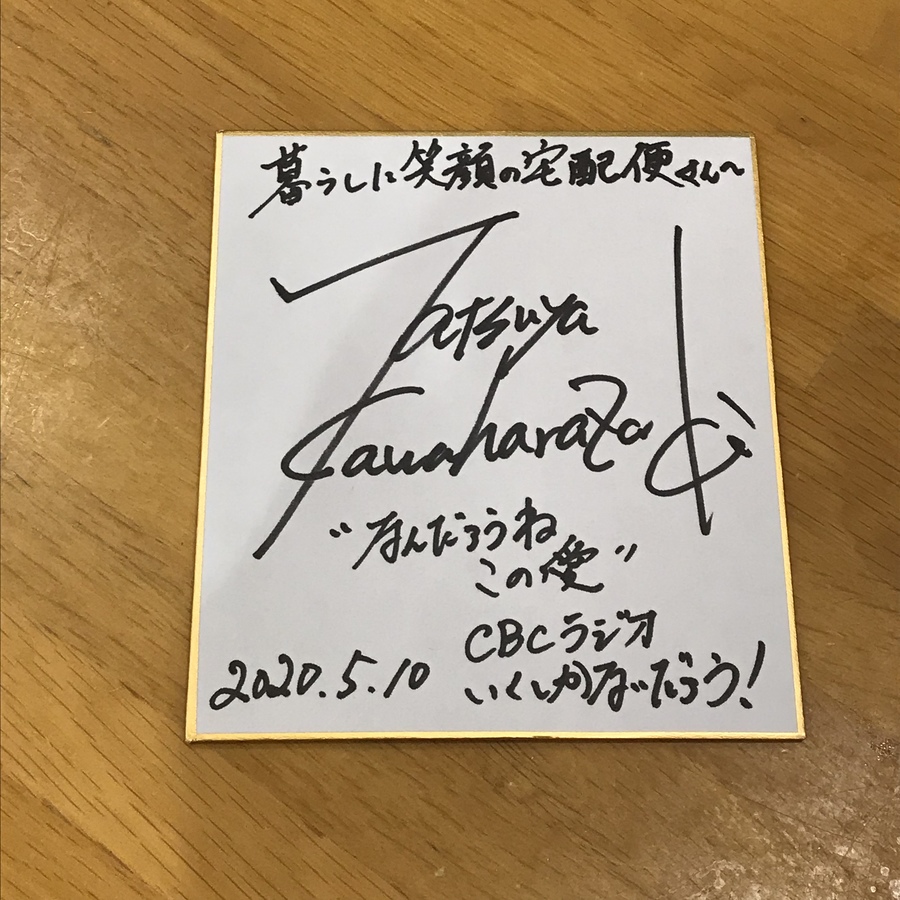 暮らしに笑顔の宅配便さんへ
Tatsuya
Kawaharazaki
"なんだろうね
この愛"
CBCラジオ
いくしかないだろう!
2020.5.10